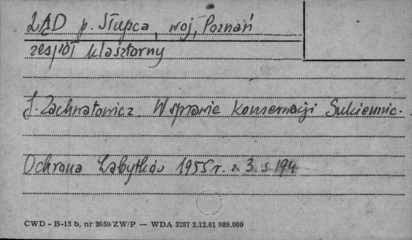 LĄD p. Słupca, woj. Poznań
zespół klasztorny
J. Zachwatowicz. W sprawie konserwacji Sukiennic.
Ochrona Zabytków 1955 r. z. 3. s. 194
CWD - B-15 b, nr 2659/ZW/P — WDA 3287 2.12.61 989.000